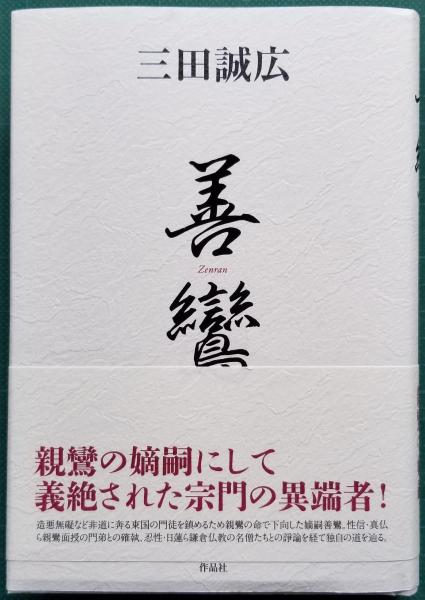 三田誠広
善鸞
Zenran
親鸞の嫡嗣にして
義絶された宗門の異端者!
造悪無礙など非道に奔る東国の門徒を鎮めるため親鸞の命で下向した嫡嗣善鸞。性信・真仏
ら親鸞面授の門弟との確執、忍性・日蓮ら鎌倉仏教の名僧たちとの諍論を経て独自の道を辿る。
作品社